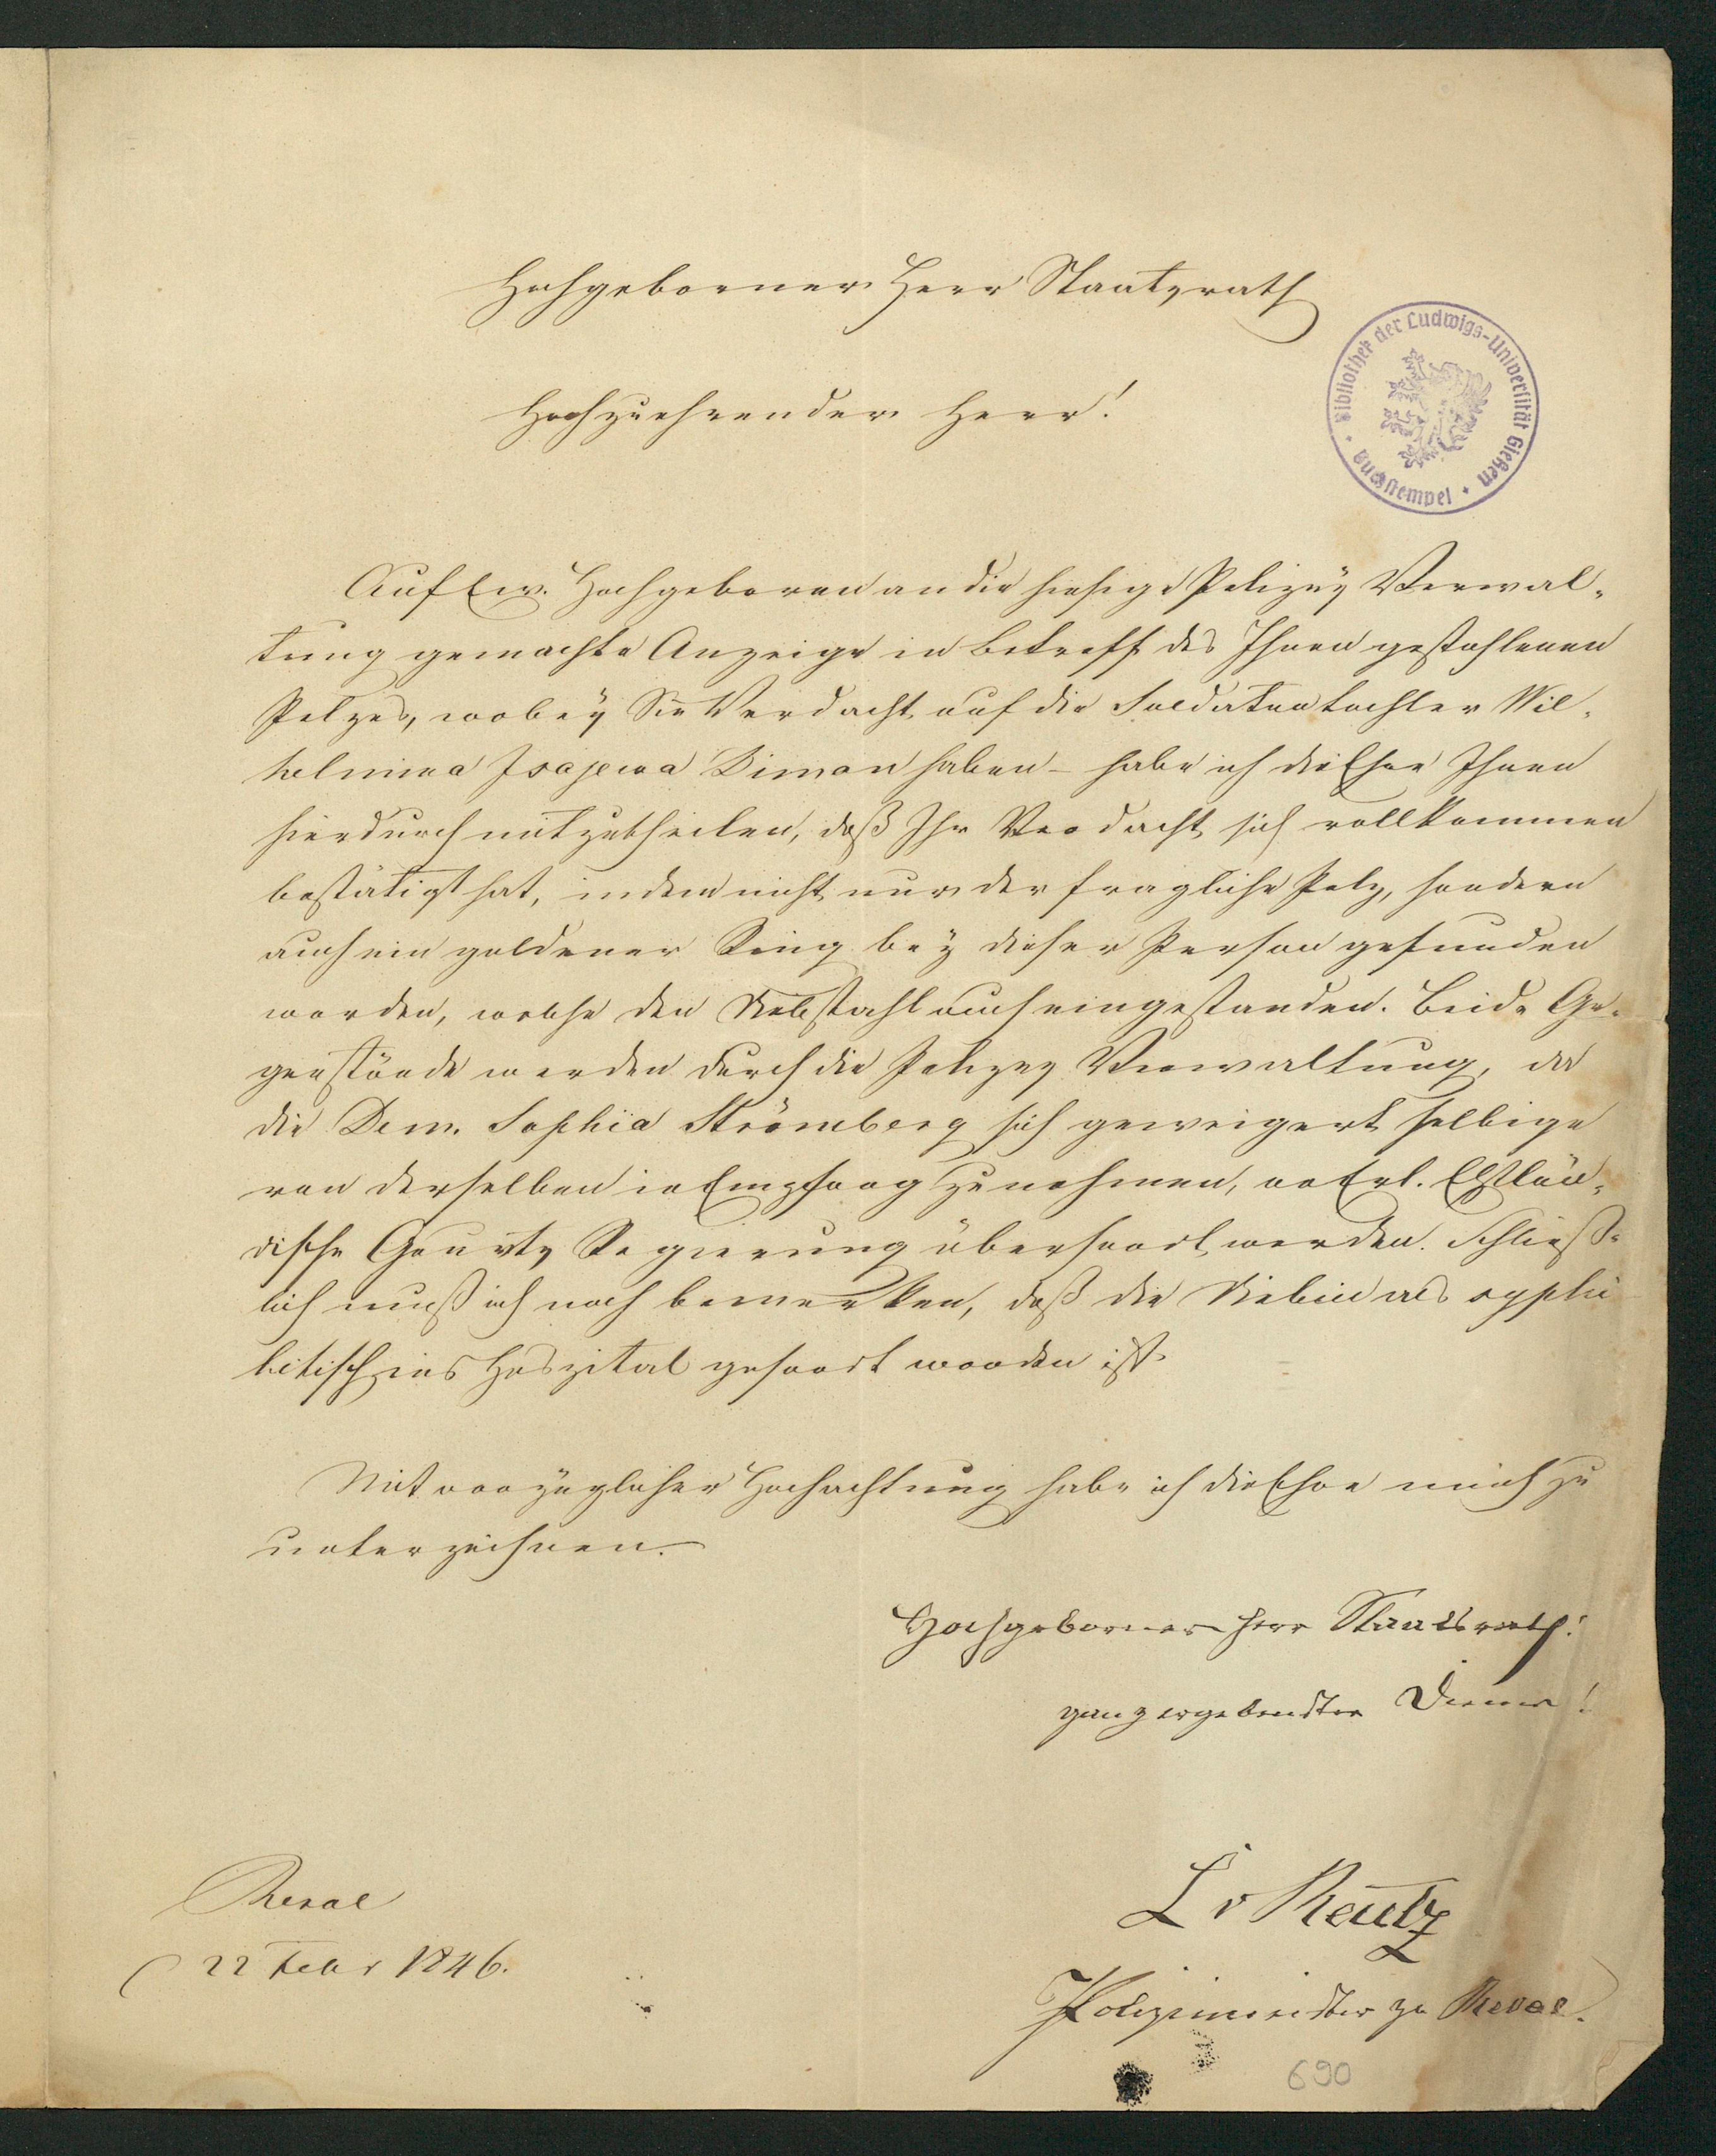 Hochgeborner Herr Staatsrath
Hochzuehrender Herr!
Bibliothek der Ludwigs-Universität Gießen
Buchstempel
Auf Ew. Hochgeboren an die hiesige Polizey Verwal-
tung gemachte Anzeige in Betreff des Ihnen gestohlenen
Pelzes, wobey Sie Verdacht auf die Soldatentochter Wil-
helmina Isajewa Simon haben – habe ich die Ehre Ihnen
hierdurch mitzutheilen, daß Ihr Verdacht sich vollkommen
bestätigt hat, indem nicht nur der fragliche Pelz, sondern
auch ein goldener Ring bey dieser Person gefunden
worden, welche den Diebstahl auch eingestanden. Beide Ge-
genstände werden durch die Polizey Verwaltung, da
die Dem. Sophia Strömberg sich geweigert selbige
von derselben in Empfang zu nehmen, an Erl. Ehstlän-
dische Gouvts Regierung übersandt werden. Schließ-
lich muß ich noch bemerken, daß die Diebin als syphi
litisch ins Hospital gesandt worden ist.
Mit vorzüglicher Hochachtung habe ich die Ehre mich zu
unterzeichnen.
Hochgeborner Herr Staatsrath!
ganz ergebenster Diener!
Reval
22 Febr 1846.
L v Reutz
Polizeimeister zu Reval.
690